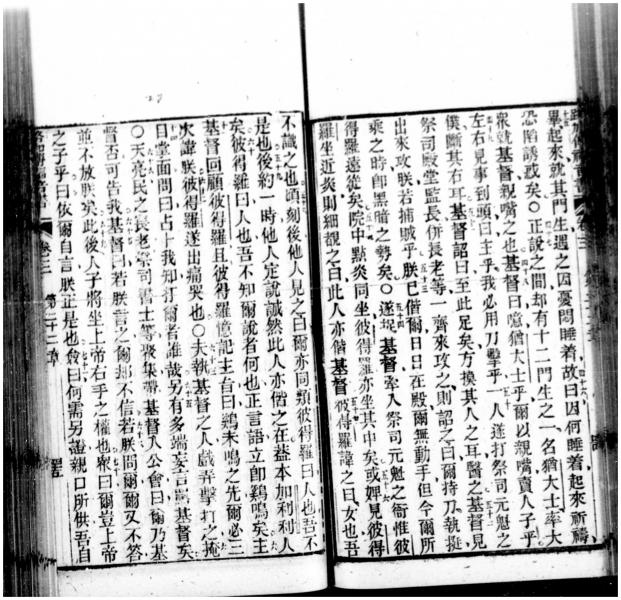 路加傳福音書 卷三
畢起來就其門生遇之因憂悶睡着故曰因何睡着起來祈禱
恐陷誘惑矣〇正說之間却有十二門生之一名猶大士率大
衆就基督親嘴之也基督曰噫猶大士乎爾以親嘴賣人子乎
左右見事到頭曰主乎我必用刀擊乎一人遂打祭司元魁之
僕斷其右耳基督詔曰至此足矣方摸其人之耳醫之基督見
祭司殿堂監長併長老等一齊來攻之則詔之曰爾持刀執挺
出來攻朕若捕賊乎朕已偕爾日日在殿爾無動手但今爾所
乘之時卽黑暗之勢矣〇遂捉基督牽入祭司元魁之衙惟彼
得羅遠從矣院中點炎同坐彼得羅亦坐其中矣或婢見彼得
羅坐近炎則細覩之曰此人亦偕基督彼得羅諱之曰女也吾
不識之也頃刻後他人見之曰爾亦同類彼得羅曰人也吾不
是也後約一時他人定說誠然此人亦偕之在益本加利利人
矣彼得羅曰人也吾不知爾說者何也正言語立卽鷄鳴矣主
基督回顧彼得羅且彼得羅憶記主言曰鷄未鳴之先爾必三
次諱朕彼得羅遂出痛哭也〇夫執基督之人戲弄擊打之掩
目掌面問曰占卜我知打爾者誰哉另有多端妄言詈基督矣
〇天亮民之長老祭司書士等聚集帶基督入公會曰爾乃基
督否可告我基督曰若朕言之爾卽不信若朕問爾爾又不答
並不放朕矣此後人子將坐上帝右手之權也衆曰爾豈上帝
之子乎曰依爾自言朕正是也僉曰何需另證親口所供吾自
路加傳福音書 卷三 第二十二章